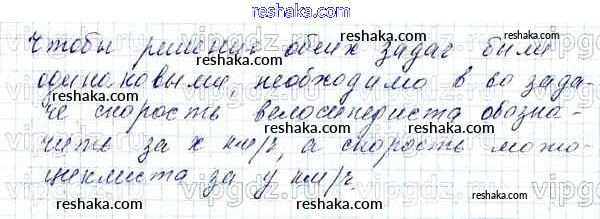 Чтобы решения обеих задач были
одинаковыми, необходимо в во зада-
че скорость велосипедиста обозна-
чить за x км/ч, а скорость мото-
циклиста за y км/ч.
reshaka.com
reshaka.com
reshaka.com
reshaka.com
reshaka.com
reshaka.com
reshaka.com
reshaka.com
reshaka.com
reshaka.com
reshaka.com
vipgdz.ru